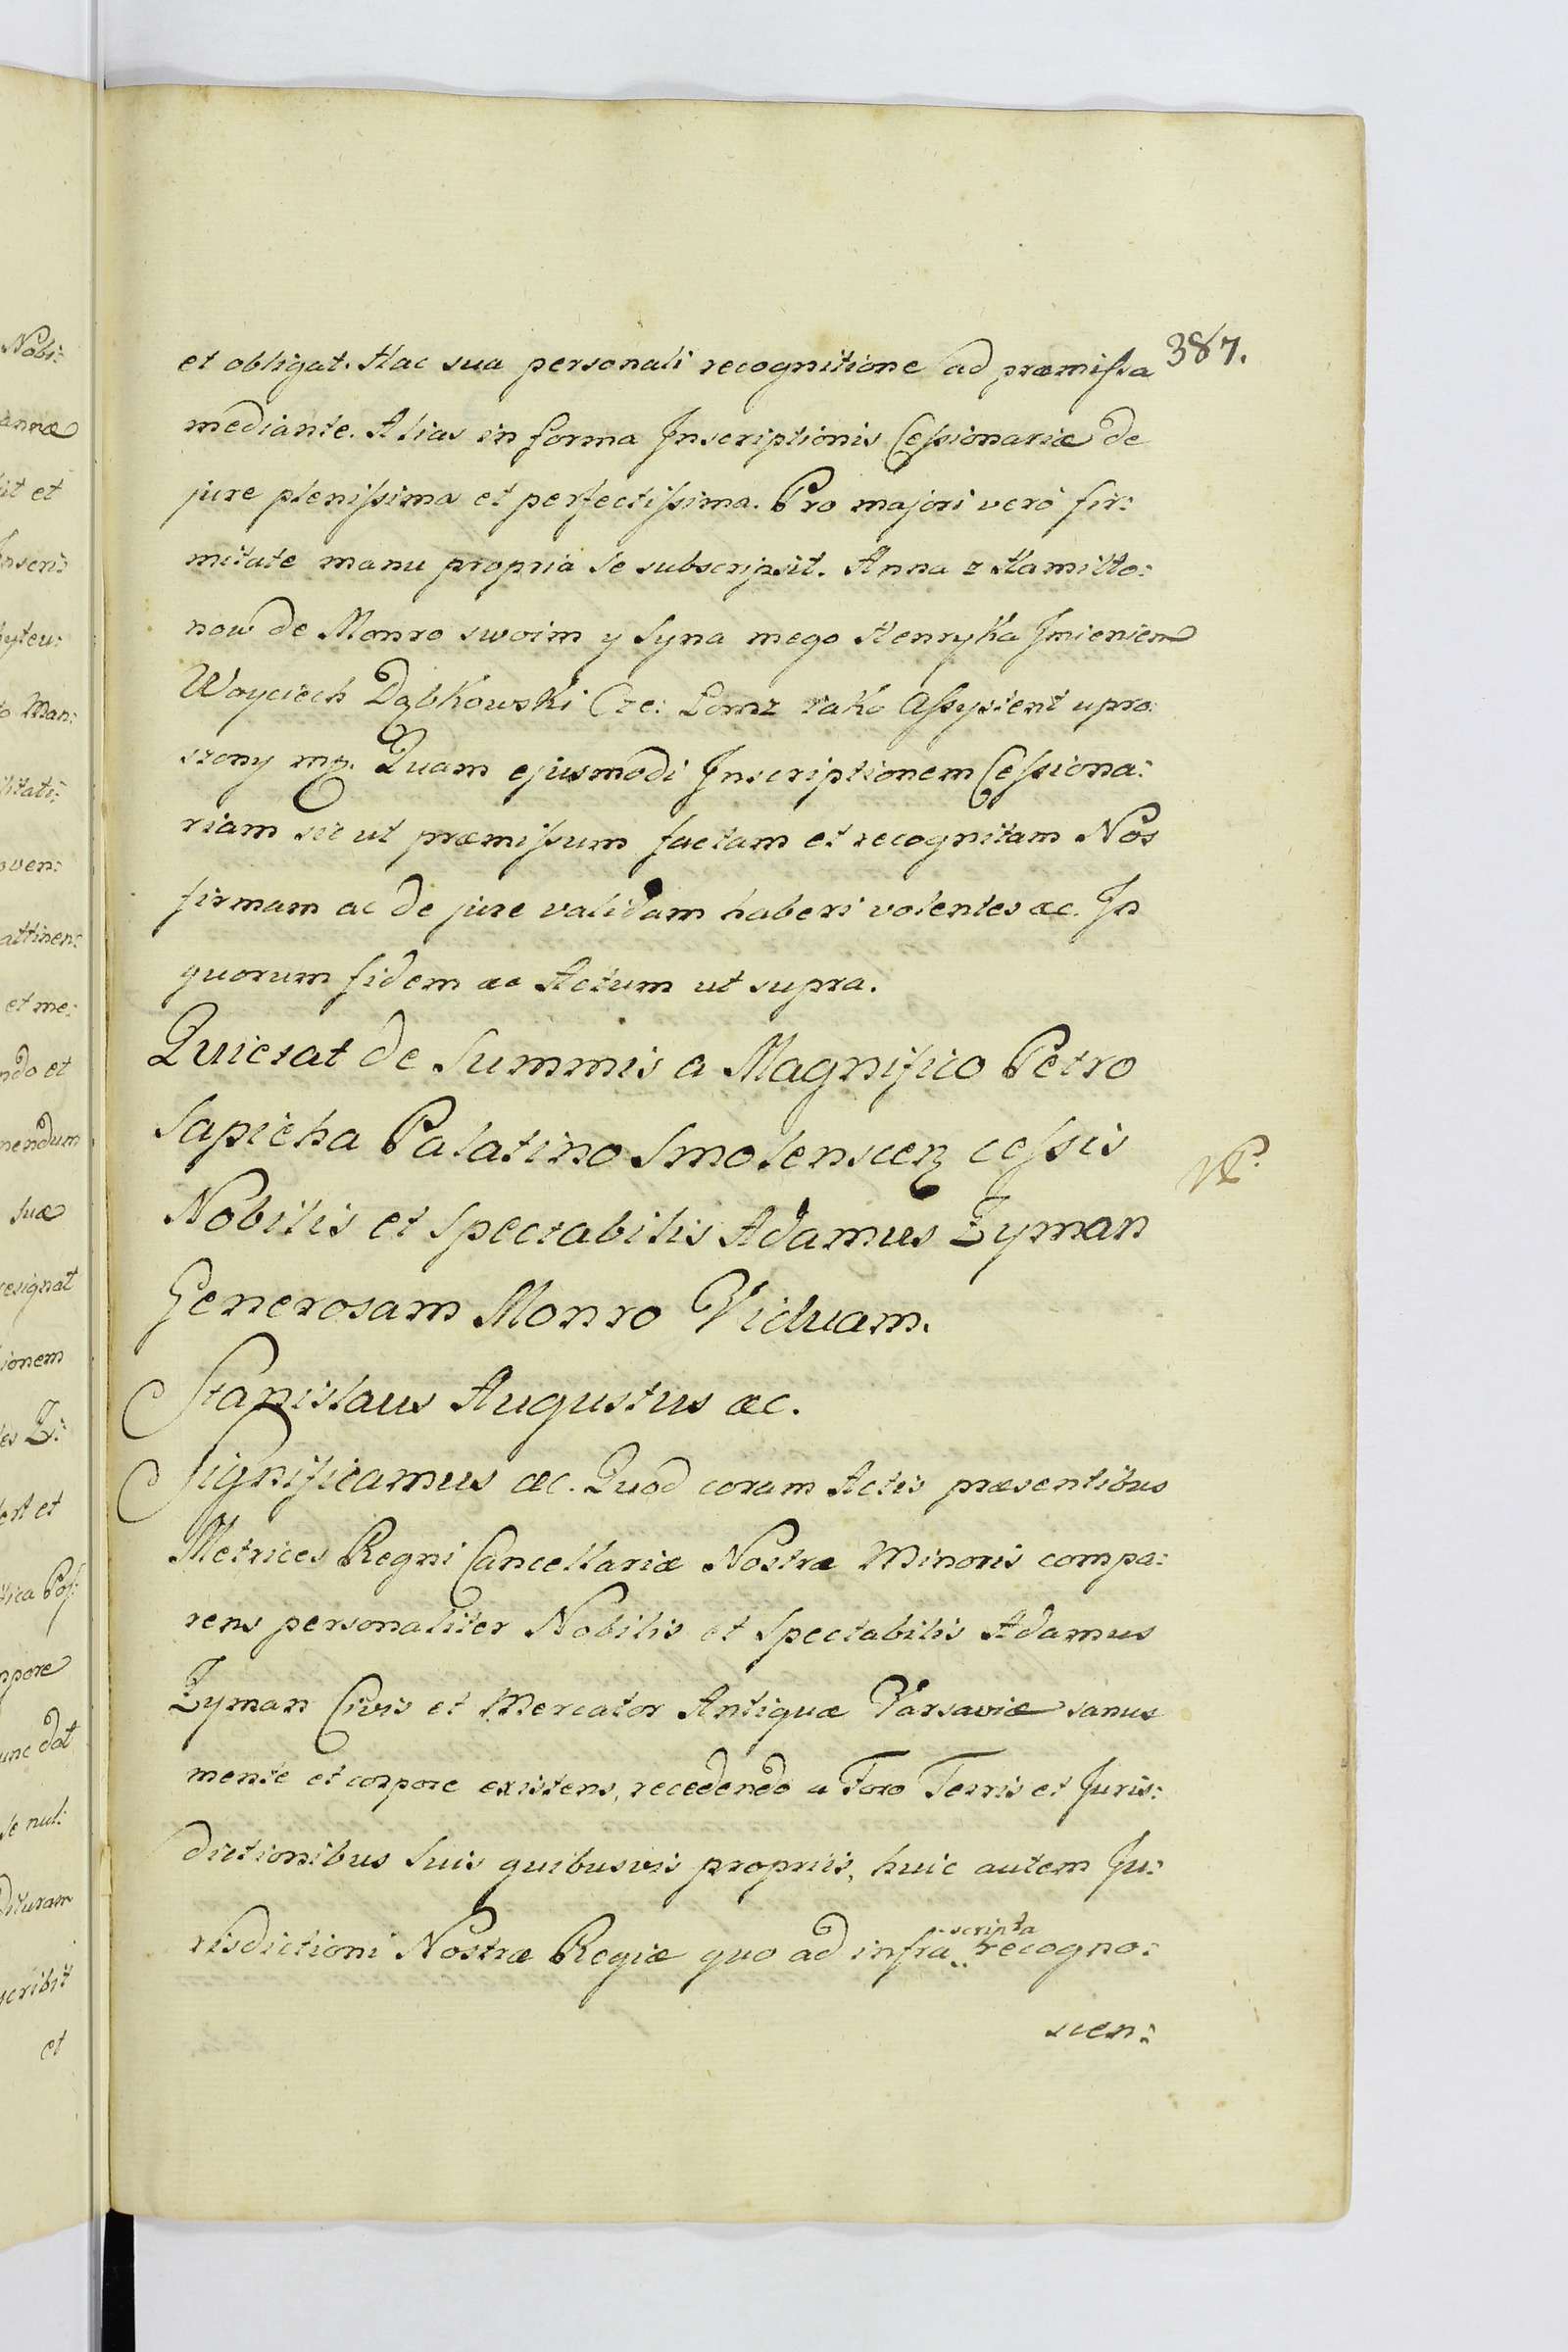 387.
et obligat. Hac sua personali recognitione ad præmissa
mediante. Alias in forma Inscriptionis Cessionariæ de
jure plenissima et perfectissima. Pro majori verò fir:
mitate manu propria se subscripsit. Anna z Hamilto:
now de Monro swoim y Syna mego Henryka Jmieniem
Woyciech Dąbkowski Cze: Łomz iako Assystent upro:
szony mp. Quam ejusmodi Inscriptionem Cessiona:
riam sic ut præmissum factam et recognitam Nos
firmam ac de jure validam haberi volentes &c. In
quorum fidem &c Actum ut supra.
Quietat de Summis a Magnifico Petro
Sapieha Palatino Smolenscen cessis
Nobilis et Spectabilis Adamus Zyman
Generosam Monro Viduam.
Stanislaus Augustus &c.
Significamus &c. Quod coram Actis præsentibus
Metrices Regni Cancellariæ Nostræ Minoris compa:
rens personaliter Nobilis et Spectabilis Adamus
Zyman Civis et Mercator Antiquæ Varsaviæ sanus
mente et corpore existens, recedendo a Foro Terris et Juris:
dictionibus Suis quibusvis propriis, huic autem Ju:
risdictioni Nostræ Regiæ quo ad infra scripta recogno:
scen:
Nobi:
annæ
it et
nscri:
hyteu:
o Man:
litati:
oven:
attinen:
et me:
ndo et
nendum
suæ
resignat
ionem
es Z:
ert et
tica Pos:
mpore
unc dat
se nul:
dituram
scribit
et